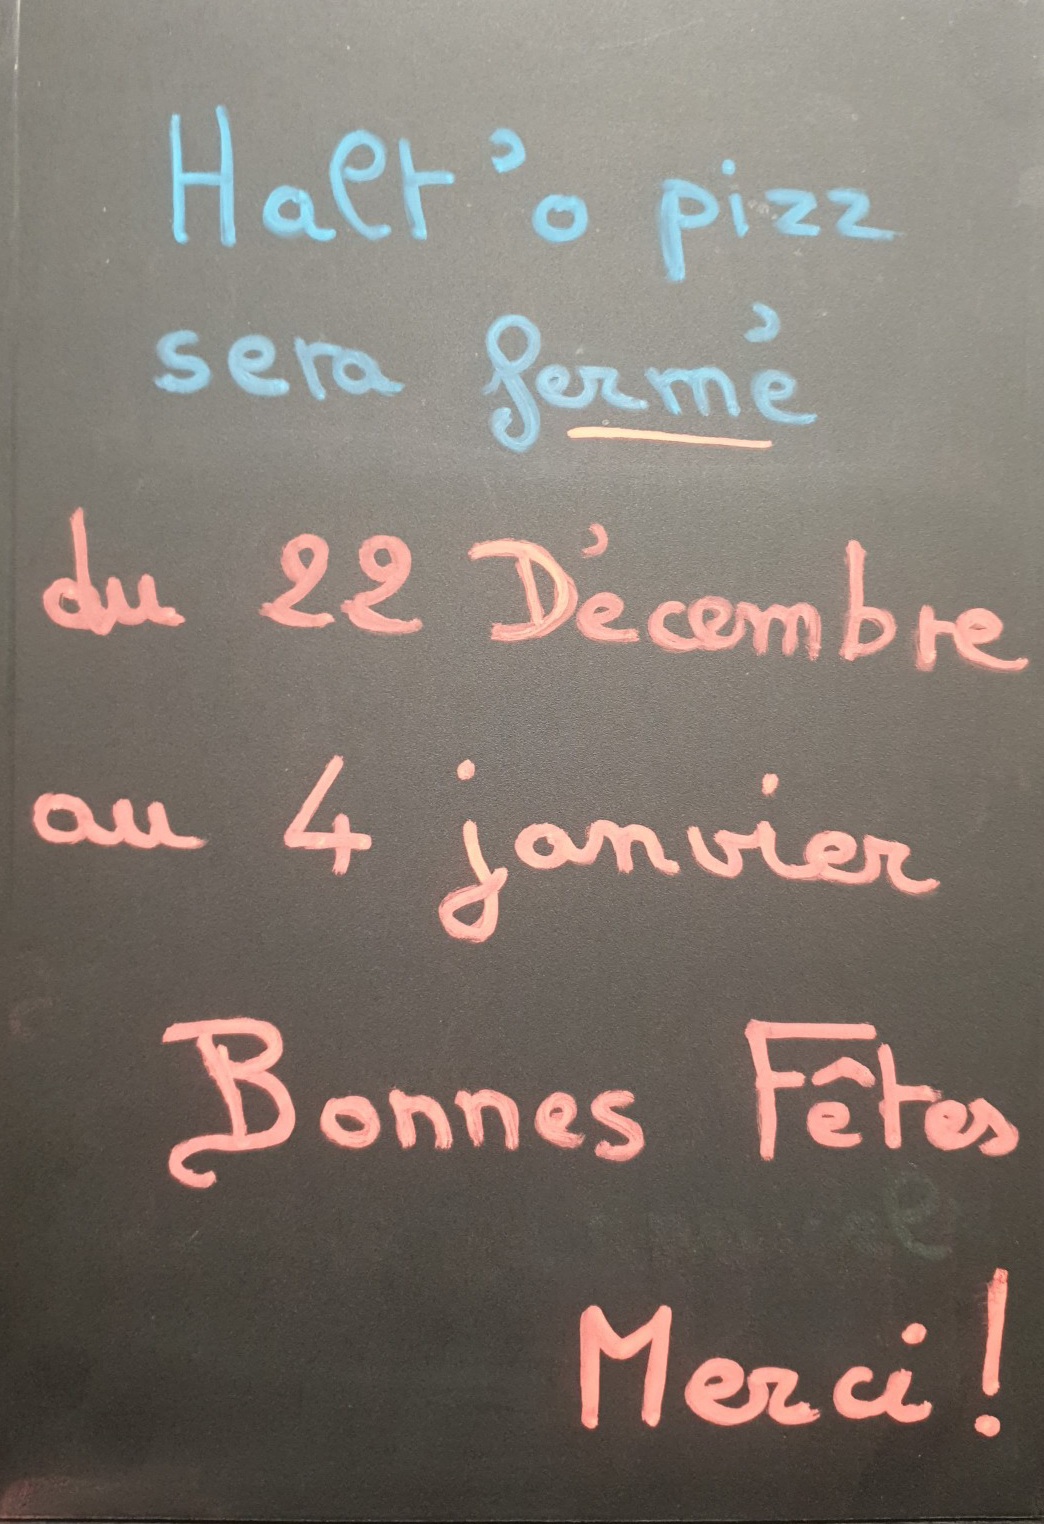 Halt'o pizz
sera fermé
du 22 Décembre
au 4 janvier
Bonnes Fêtes
Merci !